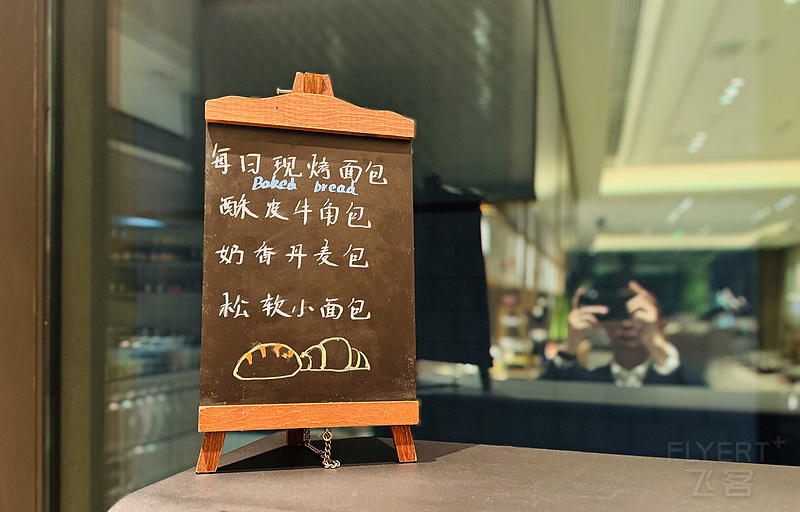 每日现烤面包
Baked bread
酥皮牛角包
奶香丹麦包
松软小面包
FLYERT+
飞客